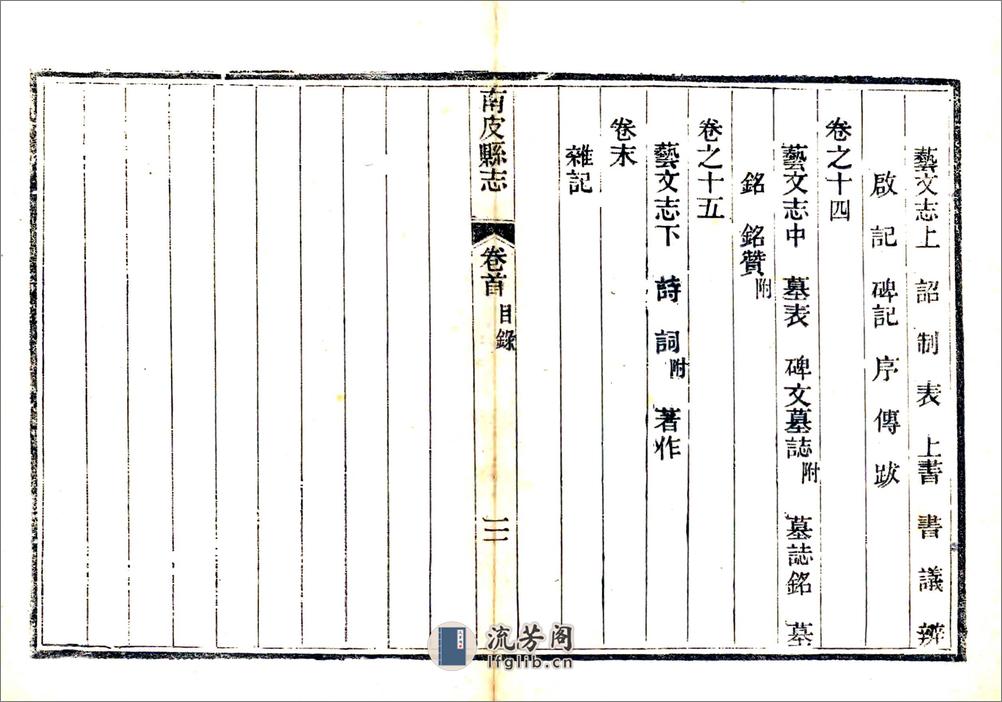 藝文志上 詔 制 表 上書 書 議 辨
啟 記 碑記 序 傳 跋
卷之十四
藝文志中 墓表 碑文墓誌附 墓誌銘 墓
銘 銘贊附
卷之十五
藝文志下 詩 詞附 著作
卷末
雜記
南皮縣志 卷首 目錄 三
流芳阁
lfglib.cn